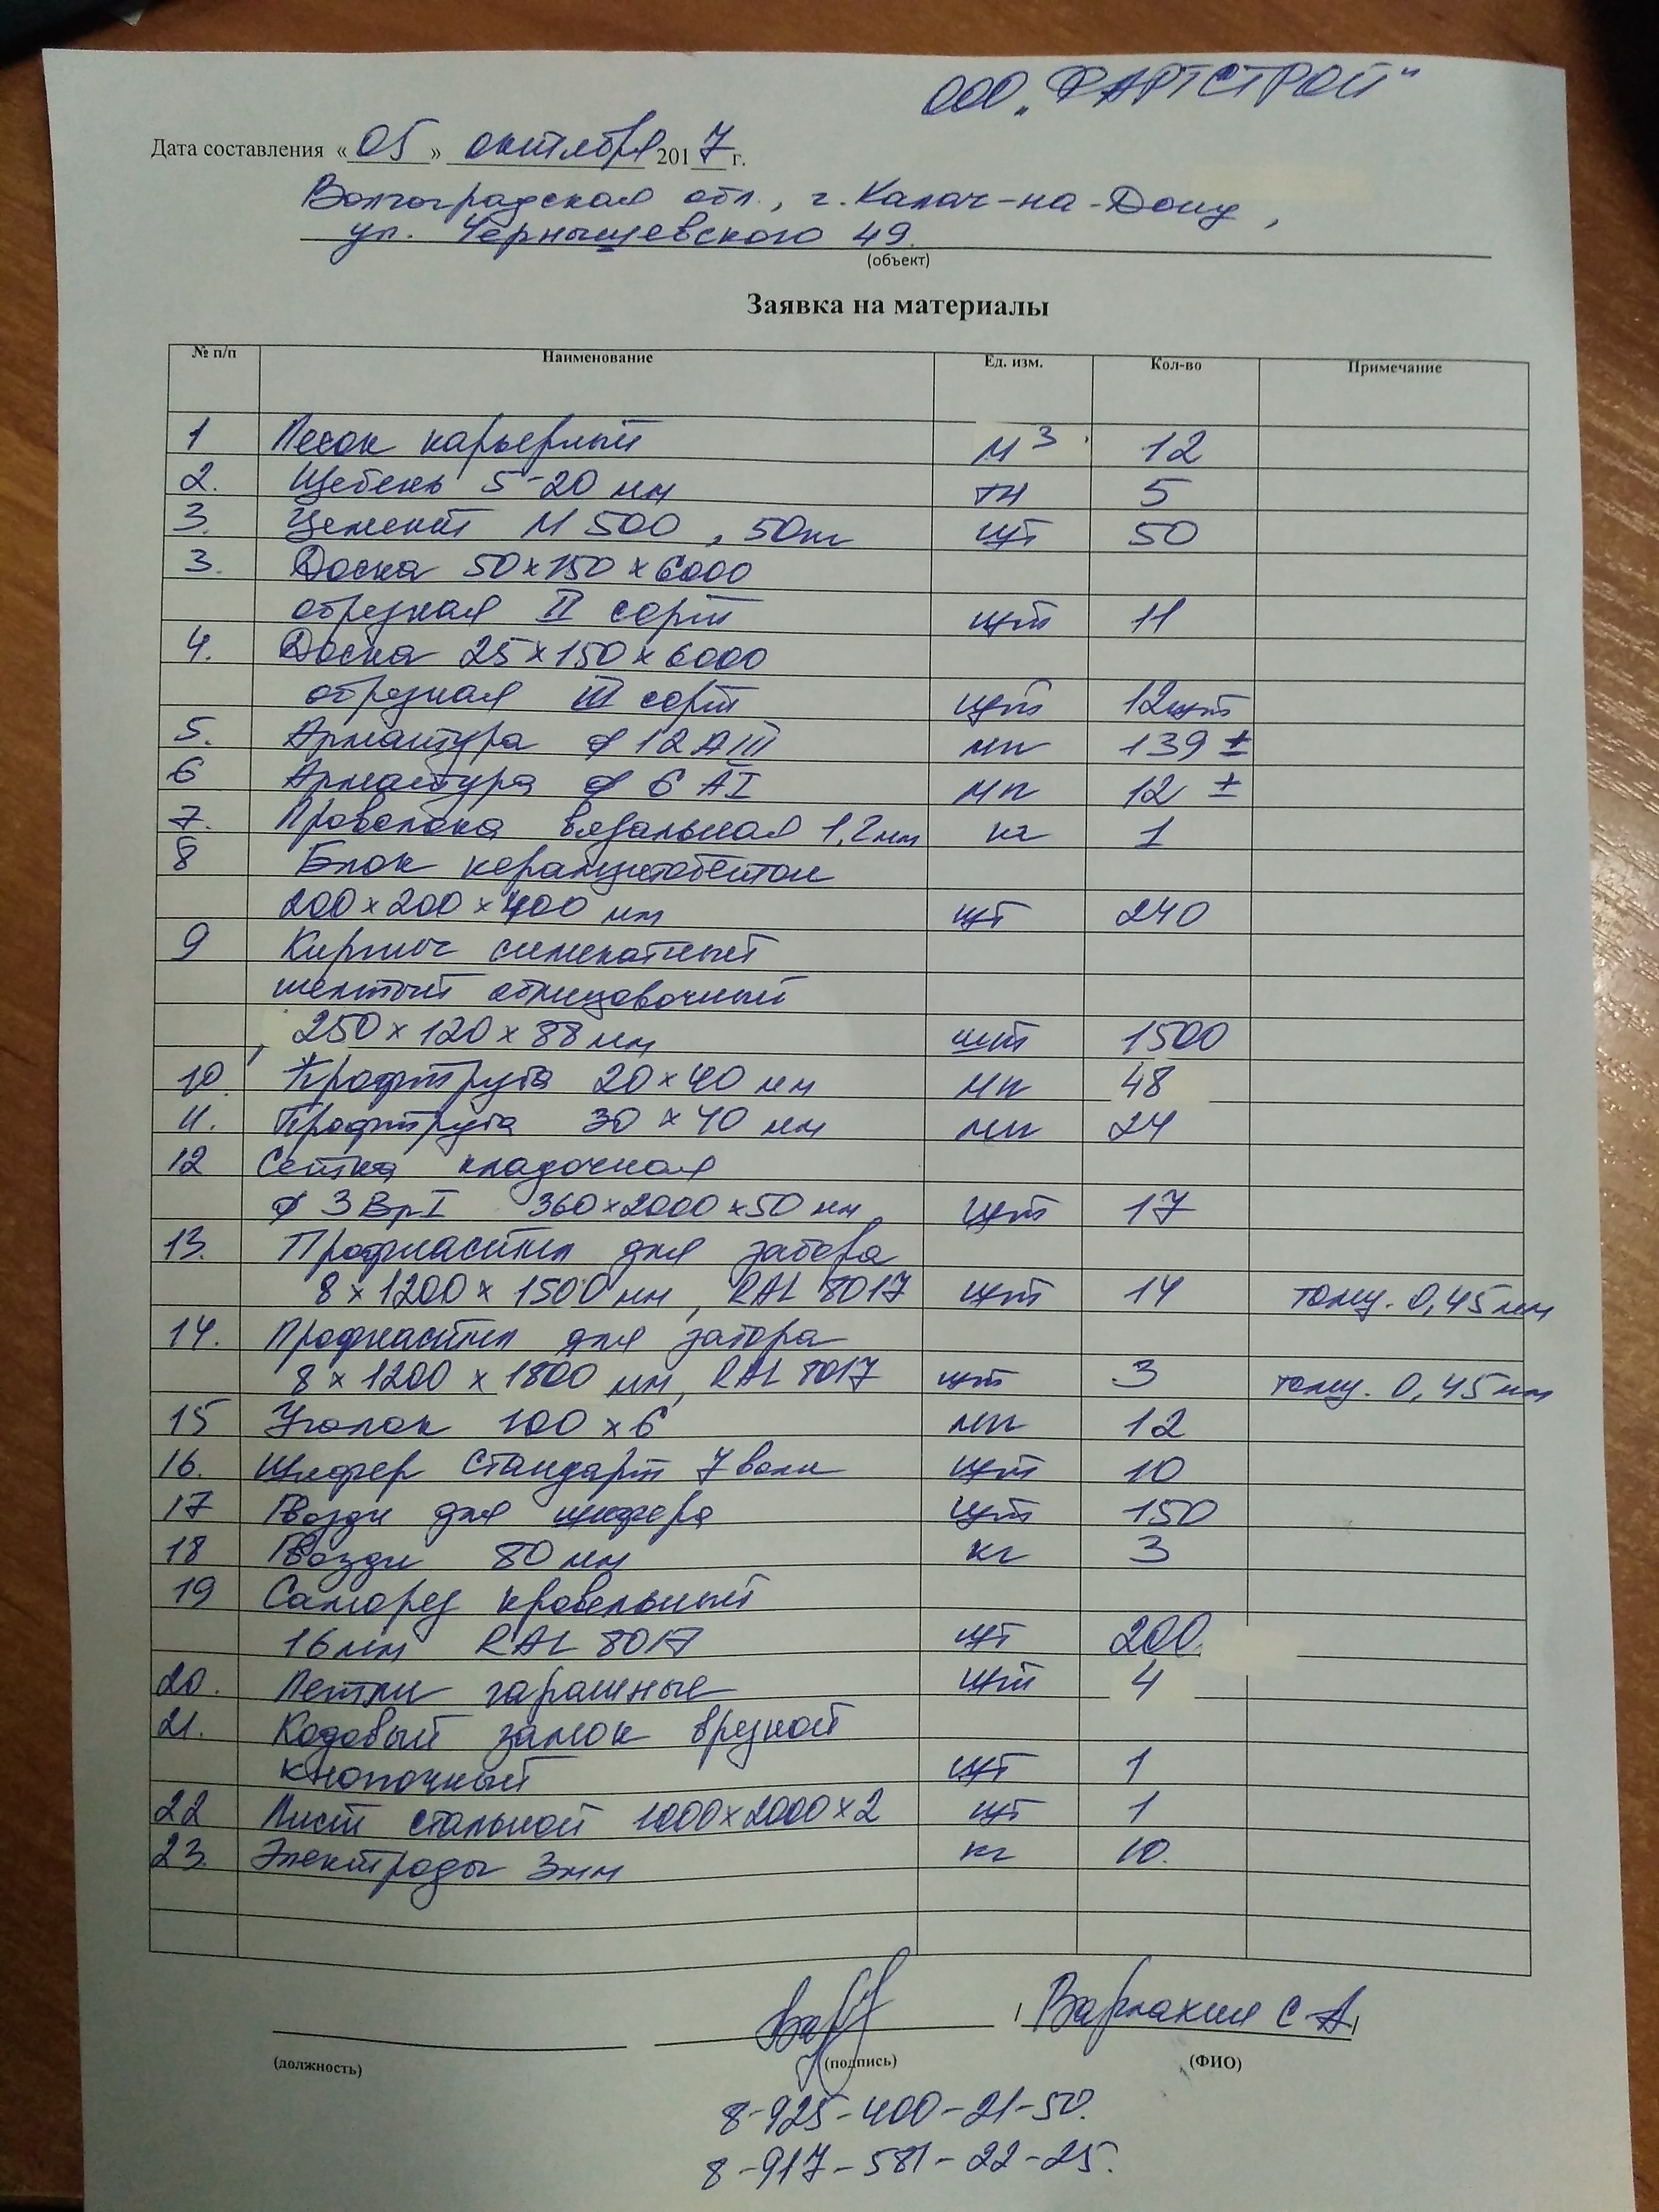 ООО „ФАРТСТРОЙ"
Дата составления «05» октября 2017 г.
Волгоградская обл., г. Калач-на-Дону,
ул. Чернышевского 49.
(объект)
Заявка на материалы
№ п/п Наименование Ед. изм. Кол-во Примечание
1 Песок карьерный м³ 12
2. Щебень 5-20 мм тн 5
3. Цемент М 500, 50кг шт 50
3. Доска 50х150х6000
обрезная II сорт шт 11
4. Доска 25х150х6000
обрезная III сорт шт 12шт
5. Арматура ø 12 АIII мп 139 ±
6 Арматура ø 6 АI мп 12 ±
7. Проволока вязальная 1,2мм кг 1
8 Блок керамзитобетон
200х200х400 мм шт 240
9 Кирпич силикатный
желтый облицовочный
250х120х88 мм шт 1500
10. Профтруба 20х40 мм мп 48
11. Профтруба 30х40 мм мп 24
12 Сетка кладочная
ø 3 ВрI 360х2000х50 мм шт 17
13. Профнастил для забора
8х1200х1500 мм, RAL 8017 шт 14 толщ. 0,45мм
14. Профнастил для забора
8х1200х1800 мм, RAL 8017 шт 3 толщ. 0,45мм
15 Уголок 100х6 мп 12
16. Шифер Стандарт 7 волн шт 10
17 Гвозди для шифера шт 150
18 Гвозди 80 мм кг 3
19 Саморез кровельный
16мм RAL 8017 шт 200
20. Петли гаражные шт 4
21. Кодовый замок врезной
кнопочный шт 1
22 Лист стальной 1000х2000х2 шт 1
23. Электроды 3мм кг 10.
Варлакин С А
(должность) (подпись) (ФИО)
8-925-400-21-50.
8-917-581-22-25.